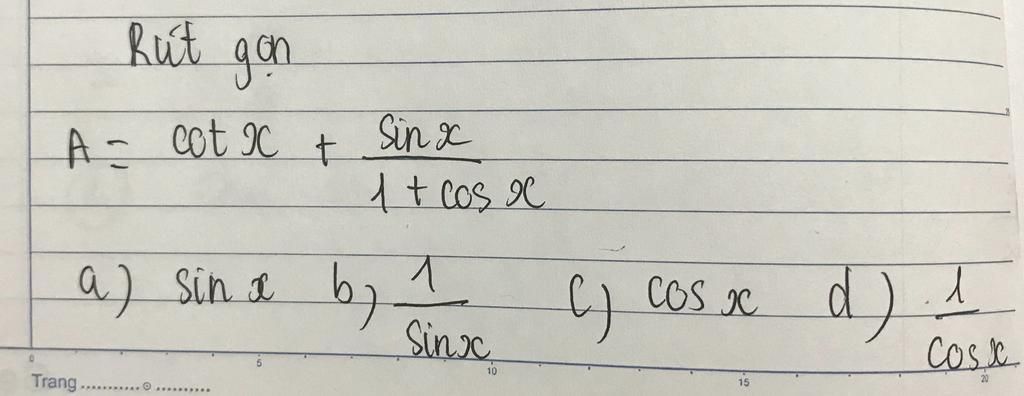 Rút gọn
A = cot x + sin x / 1 + cos x
a) sin x b) 1 / sin x c) cos x d) 1 / cos x
0 5 10 15 20
Trang